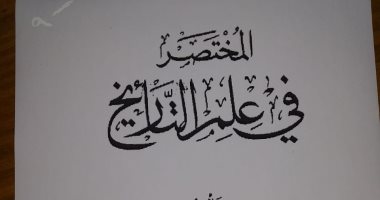 المُخْتَصَر
في عِلمِ التَّارِيخ